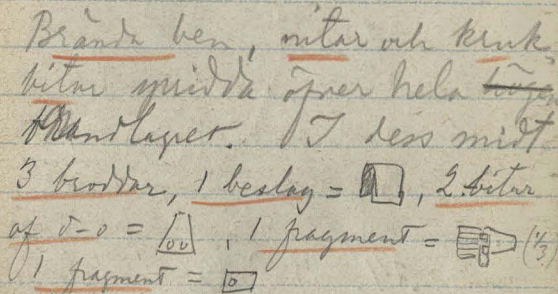 Brända ben, nitar och kruk-
bitar spridda öfver hela
brandlagret. I dess midt
3 broddar, 1 beslag = , 2 bitar
af d-o = , 1 fragment = (1/3)
1 fragment =